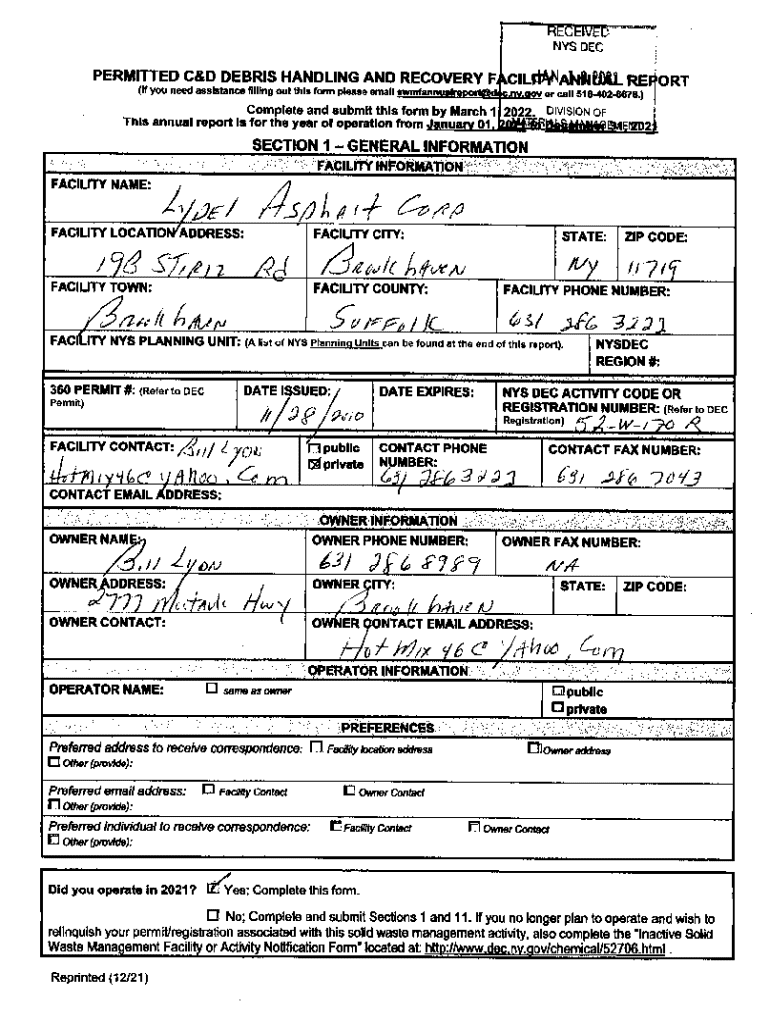 RECEIVED
NYS DEC
PERMITTED C&D DEBRIS HANDLING AND RECOVERY FACILITY ANNUAL REPORT
(If you need assistance filling out this form please email swmfannualreport@dec.ny.gov or call 518-402-8678.)
Complete and submit this form by March 1, 2022. DIVISION OF
This annual report is for the year of operation from January 01, 2021 to December 31, 2021
SECTION 1 – GENERAL INFORMATION
FACILITY INFORMATION
FACILITY NAME:
Lydel Asphalt Corp
FACILITY LOCATION ADDRESS: FACILITY CITY: STATE: ZIP CODE:
19B Stiriz Rd Brookhaven NY 11719
FACILITY TOWN: FACILITY COUNTY: FACILITY PHONE NUMBER:
Brookhaven Suffolk 631 286 3222
FACILITY NYS PLANNING UNIT: (A list of NYS Planning Units can be found at the end of this report). NYSDEC
REGION #:
360 PERMIT #: (Refer to DEC Permit) DATE ISSUED: DATE EXPIRES: NYS DEC ACTIVITY CODE OR
REGISTRATION NUMBER: (Refer to DEC
11/28/2010 Registration) 52-W-170 R
FACILITY CONTACT: Bill Lyon public CONTACT PHONE CONTACT FAX NUMBER:
private NUMBER:
Hotmix46@yAhoo.Com 631 2863223 631 286 7043
CONTACT EMAIL ADDRESS:
OWNER INFORMATION
OWNER NAME: OWNER PHONE NUMBER: OWNER FAX NUMBER:
Bill Lyon 631 286 8989 NA
OWNER ADDRESS: OWNER CITY: STATE: ZIP CODE:
2777 Montauk Hwy Brookhaven
OWNER CONTACT: OWNER CONTACT EMAIL ADDRESS:
HotMix 46@yAhoo.Com
OPERATOR INFORMATION
OPERATOR NAME: same as owner public
private
PREFERENCES
Preferred address to receive correspondence: Facility location address Owner address
Other (provide):
Preferred email address: Facility Contact Owner Contact
Other (provide):
Preferred individual to receive correspondence: Facility Contact Owner Contact
Other (provide):
Did you operate in 2021? Yes; Complete this form.
No; Complete and submit Sections 1 and 11. If you no longer plan to operate and wish to
relinquish your permit/registration associated with this solid waste management activity, also complete the "Inactive Solid
Waste Management Facility or Activity Notification Form" located at: http://www.dec.ny.gov/chemical/52706.html .
Reprinted (12/21)